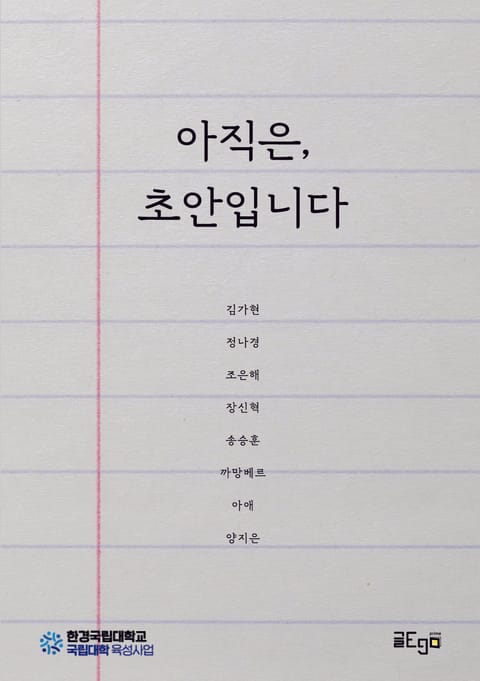 아직은,
초안입니다
김가현
정나경
조은해
장신혁
송승훈
까망베르
아애
양지은
한경국립대학교
국립대학 육성사업
글Ego